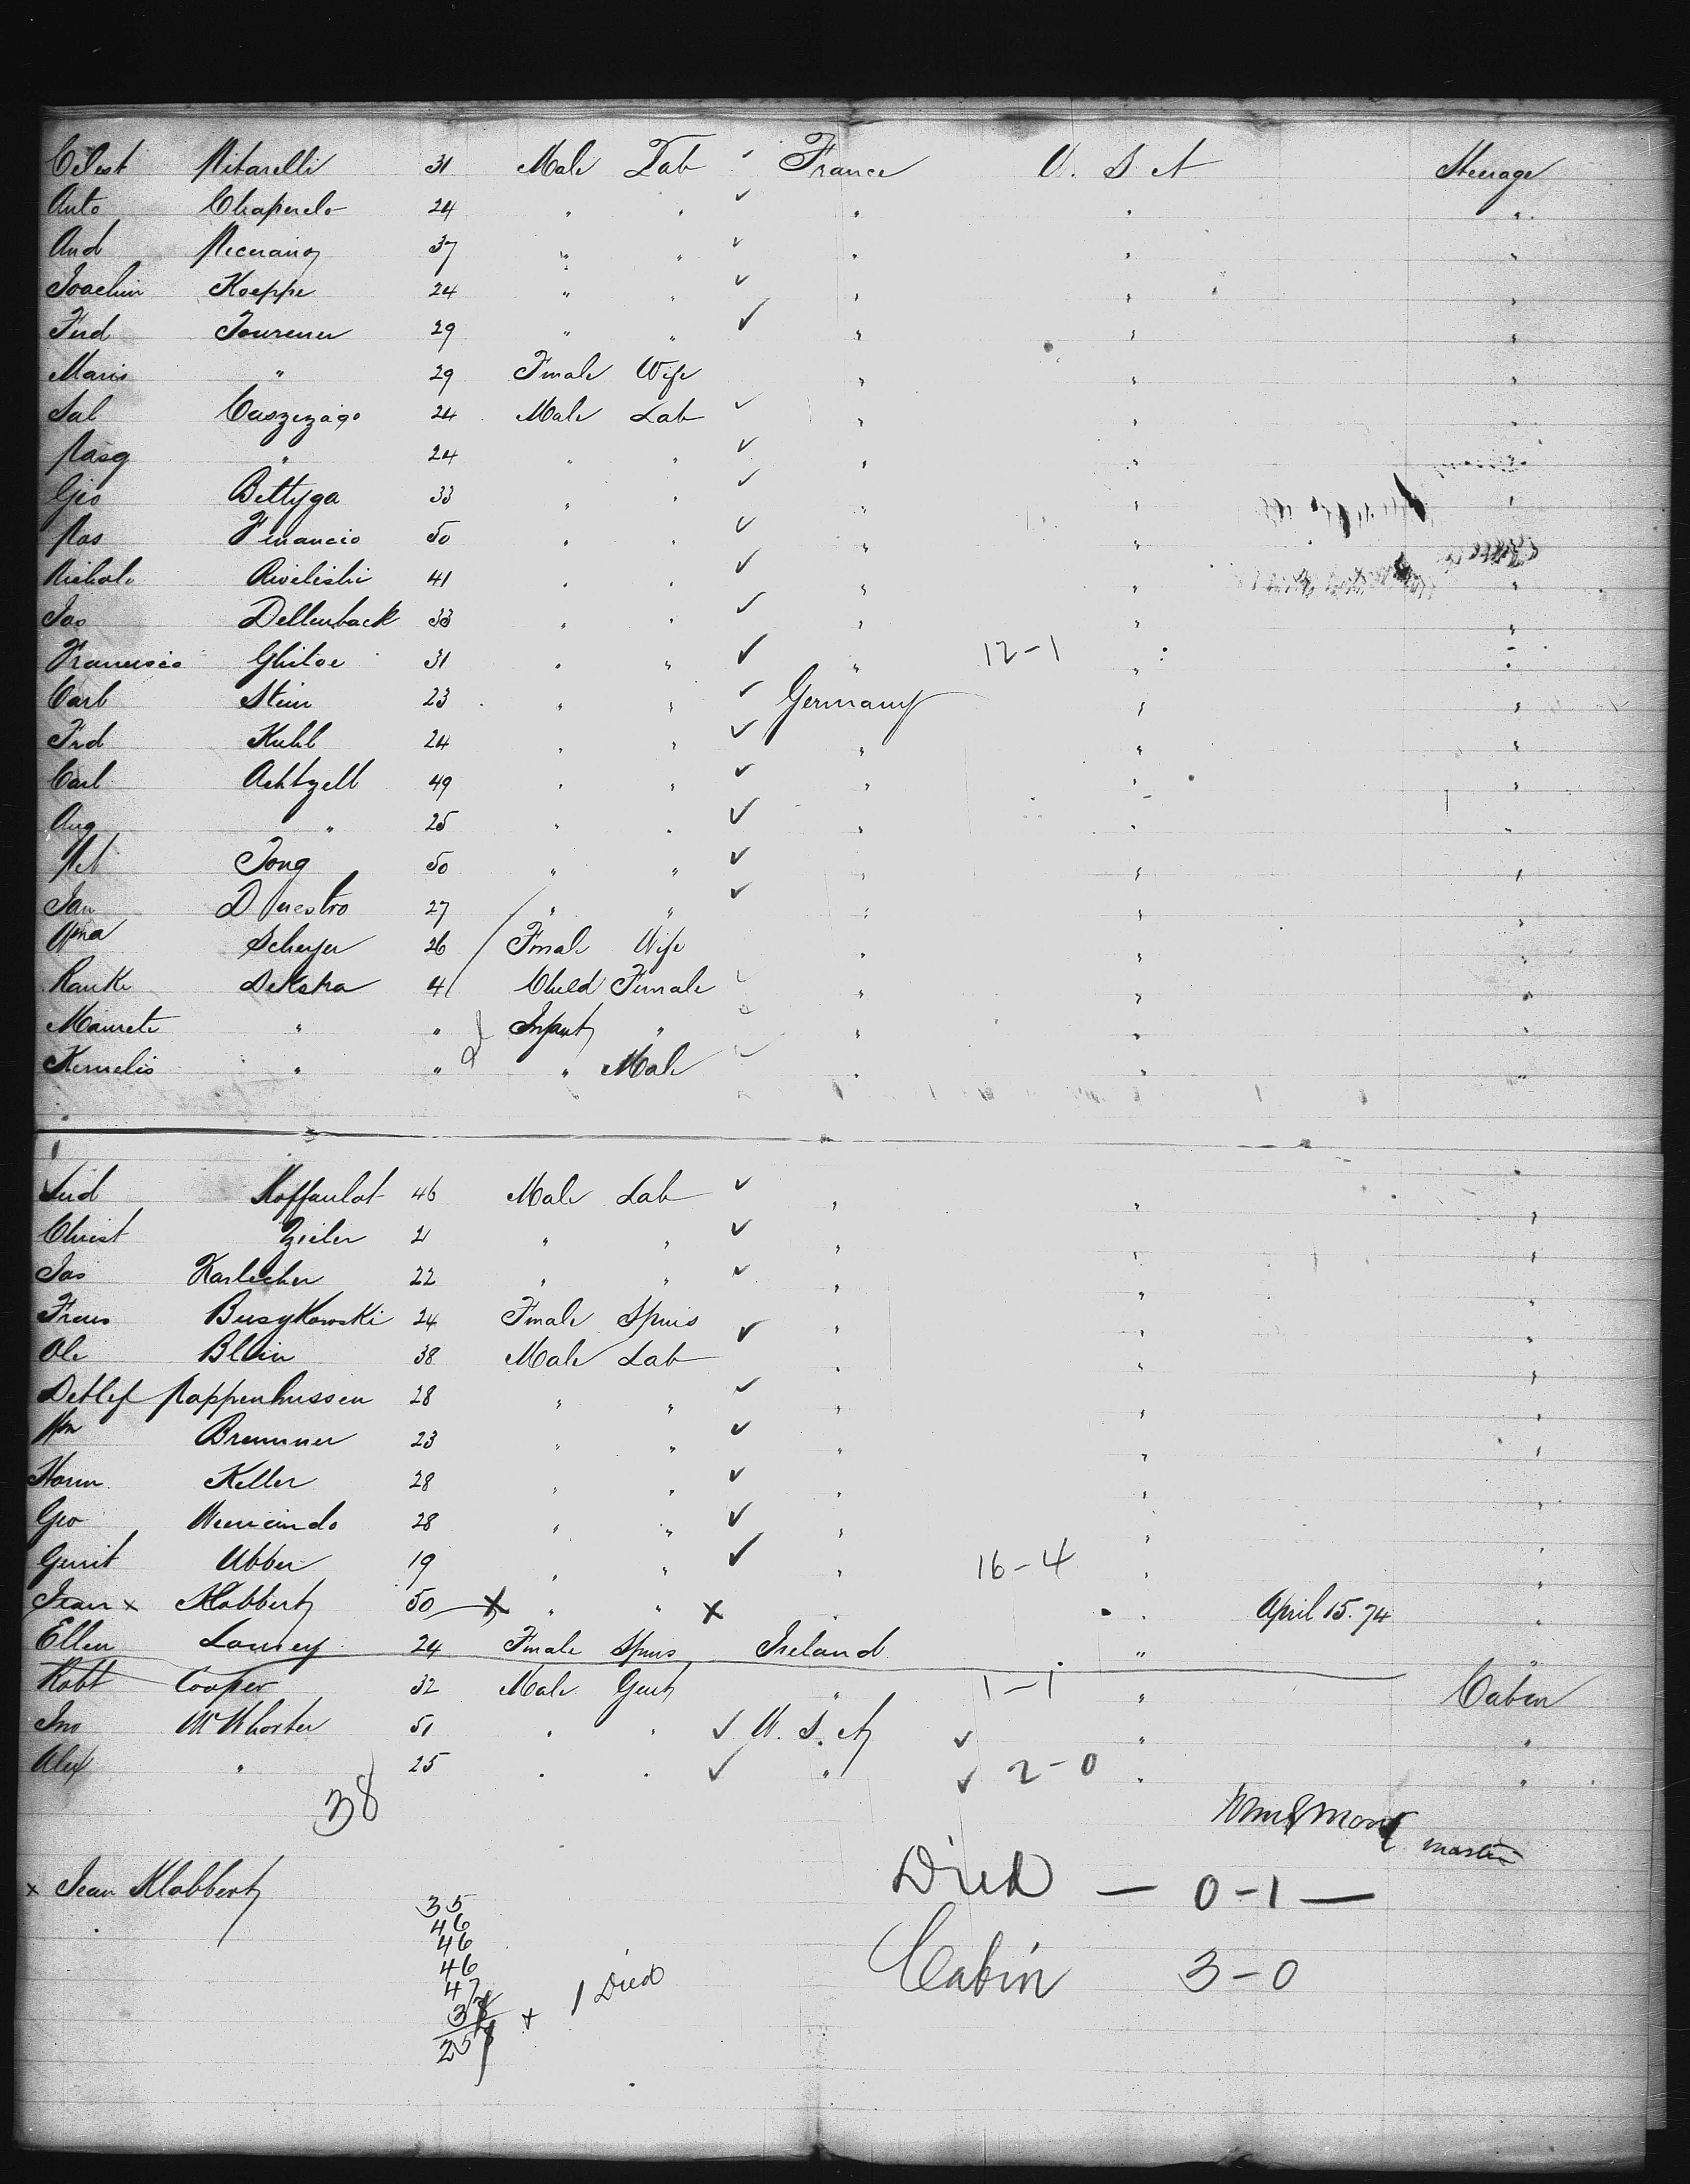 Celest Pitarelli 31 Male Lab ✓ France U. S. A Steerage
Anto Chaperelo 24 " " ✓ " " "
And 37 " " ✓ " " "
Joachim Koeppe 24 " " ✓ " " "
Ferd Tourener 29 " " ✓ " " "
Marie " 29 Female Wife " " "
Sal 24 Male Lab ✓ " " "
Pasq " 24 " " ✓ " " "
Gio Bettyga 33 " " ✓ " " "
Pas Financio 50 " " ✓ " " "
Nichole 41 " " ✓ " " "
Jas Dellenback 33 " " ✓ " " "
Francisco Ghiloe 31 " " ✓ " 12-1 " "
Carl Stein 23 " " ✓ Germany " "
Frd Kuhl 24 " " ✓ " " "
Carl Achtzell 49 " " ✓ " " "
Aug " 25 " " ✓ " " "
Pet Jong 50 " " ✓ " " "
Jan 27 " " ✓ " " "
Scheyer 26 Fmale Wife " " "
Ranke Dekstra 4 Child Female ✓ " " "
Maurete " " Infant " ✓ " " "
Kernelis " " " Male ✓ " " "
Lud Koffanlat 46 Male Lab ✓ " " "
Christ Zieler 21 " " ✓ " " "
Jas Karlecher 22 " " ✓ " " "
Frans Busykowski 24 Fmale Spins " " "
Ole Blein 38 Male Lab ✓ " " "
Detlef Pappenhussen 28 " " ✓ " " "
Wm Bremmer 23 " " ✓ " " "
Herm Keller 28 " " ✓ " " "
Geo 28 " " ✓ " " "
Gerrit Ubben 19 " " ✓ " 16-4 " "
Jean x Klabbert 50 x " " x " " April 15. 74 "
Ellen Lowrey 24 Fmale Spins Ireland " "
Robt Cooper 32 Male Gent " 1-1 " Cabin
Jno McWhorter 51 " " ✓ U. S. A ✓ " "
Alex " 25 " " ✓ " ✓ 2-0 " "
38
master
x Jean Klabbert
Died — 0-1 —
35
46
46
46
47
38
258
x 1 Died
Cabin 3-0